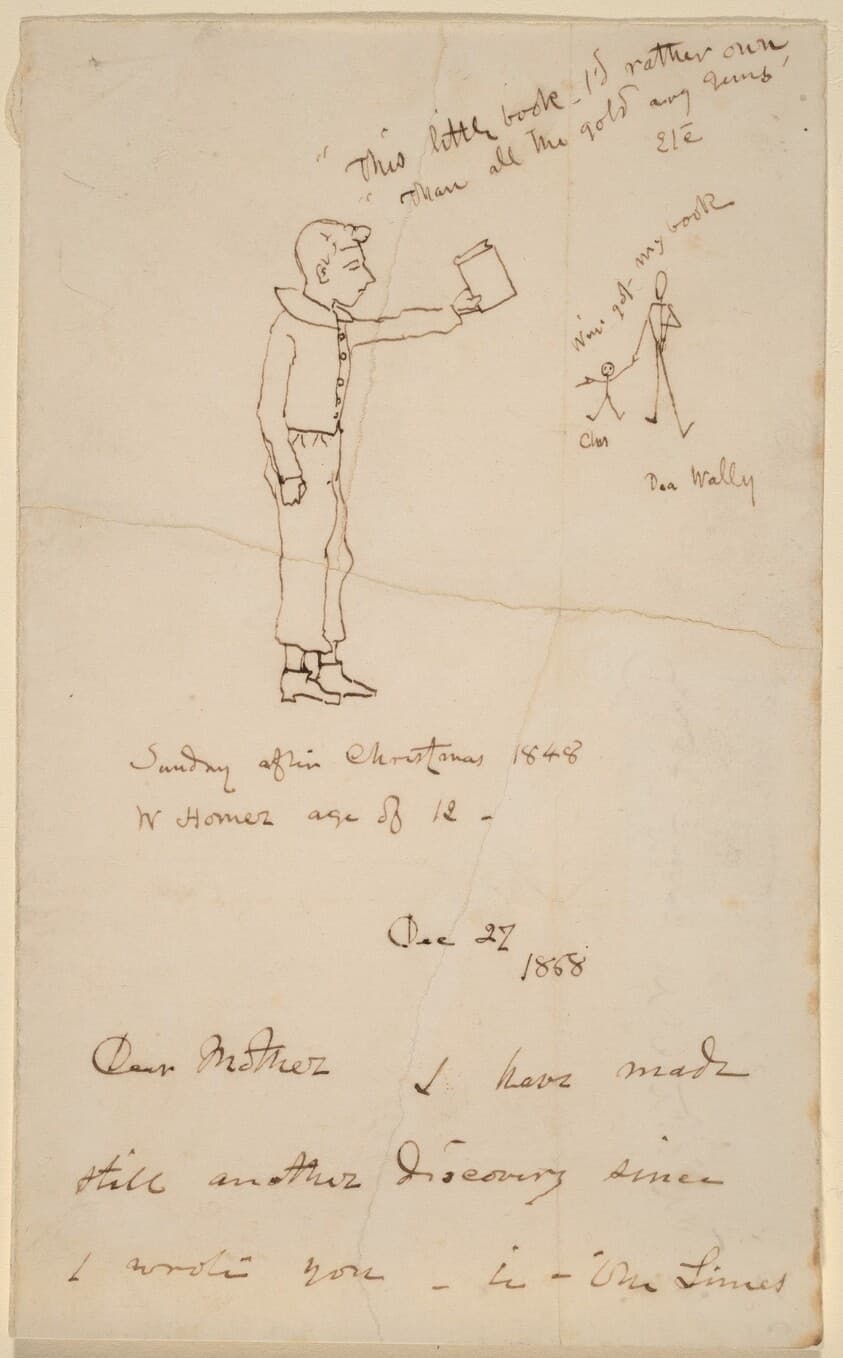 " "This little book - I'd rather own
" than all the gold any gems'
Etc
Win: got my book
Chas
Dea Wally
Sunday after Christmas 1848
W Homer age of 12 -
Dec 27
1868
Dear Mother I have made
still another discovery since
I wrote you - in - the Times